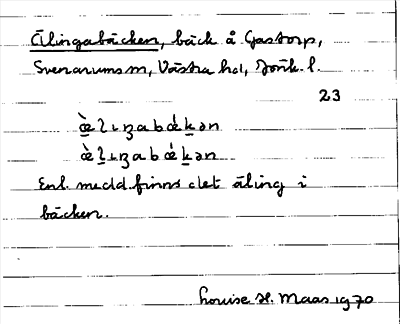 Ålingabäcken, bäck å Gastorp,
Svenarums sn, Västra hd, Jönk. l.
23
œ̀lıŋabœ́kən
œ̀lıŋabœ́kən
Enl. medd. finns det åling i
bäcken.
Louise H. Maas 1970